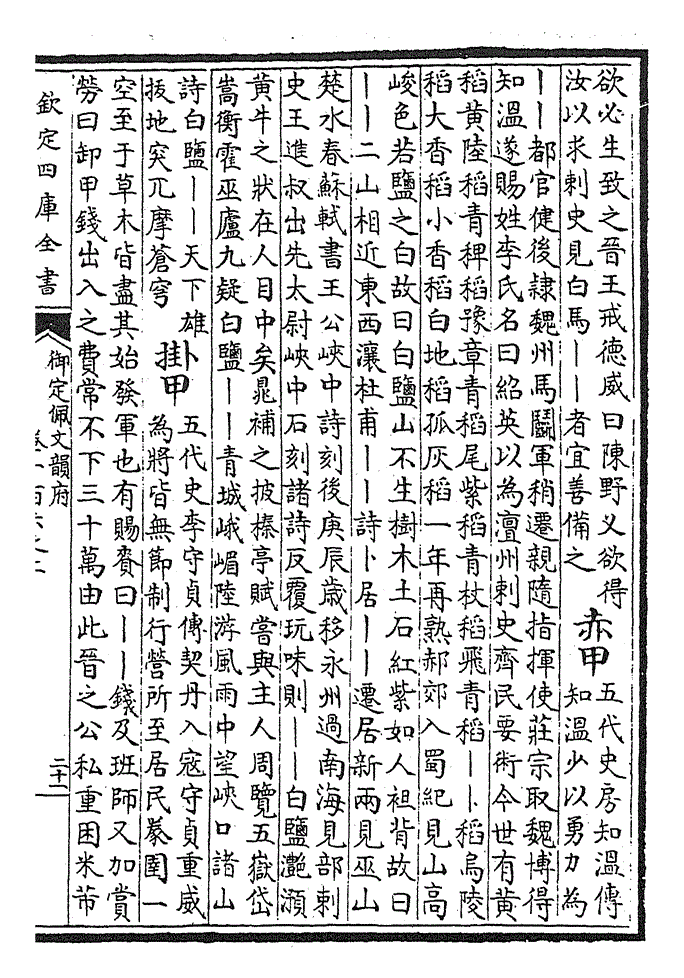 欲必生致之晉王戒德威曰陳野乂欲得
汝以求刺史見白馬——者宜善備之
赤甲
五代史房知溫傳
知溫少以勇力為
——都官健後隸魏州馬鬭軍稍遷親隨指揮使莊宗取魏博得
知溫遂賜姓李氏名曰紹英以為澶州刺史齊民要術今世有黃
稻黃陸稻青稗稻豫章青稻尾紫稻青杖稻飛青稻——稻烏陵
稻大香稻小香稻白地稻孤灰稻一年再熟郝郊入蜀紀見山高
峻色若鹽之白故曰白鹽山不生樹木土石紅紫如人袒背故曰
——二山相近東西瀼杜甫——詩卜居——遷居新兩見巫山
楚水春蘇軾書王公峽中詩刻後庚辰歲移永州過南海見部刺
史王進叔出先太尉峽中石刻諸詩反覆玩味則——白鹽灧澦
黃牛之狀在人目中矣晁補之披榛亭賦嘗與主人周覽五嶽岱
嵩衡霍巫廬九疑白鹽——青城峨嵋陸游風雨中望峽口諸山
詩白鹽——天下雄
拔地突兀摩蒼穹
掛甲
五代史李守貞傳契丹入寇守貞重威
為將皆無節制行營所至居民豢圉一
空至于草木皆盡其始發軍也有賜賚曰——錢及班師又加賞
勞曰卸甲錢出入之費常不下三十萬由此晉之公私重困米芾
欽定四庫全書
御定佩文韻府
卷一百六之二
二十一